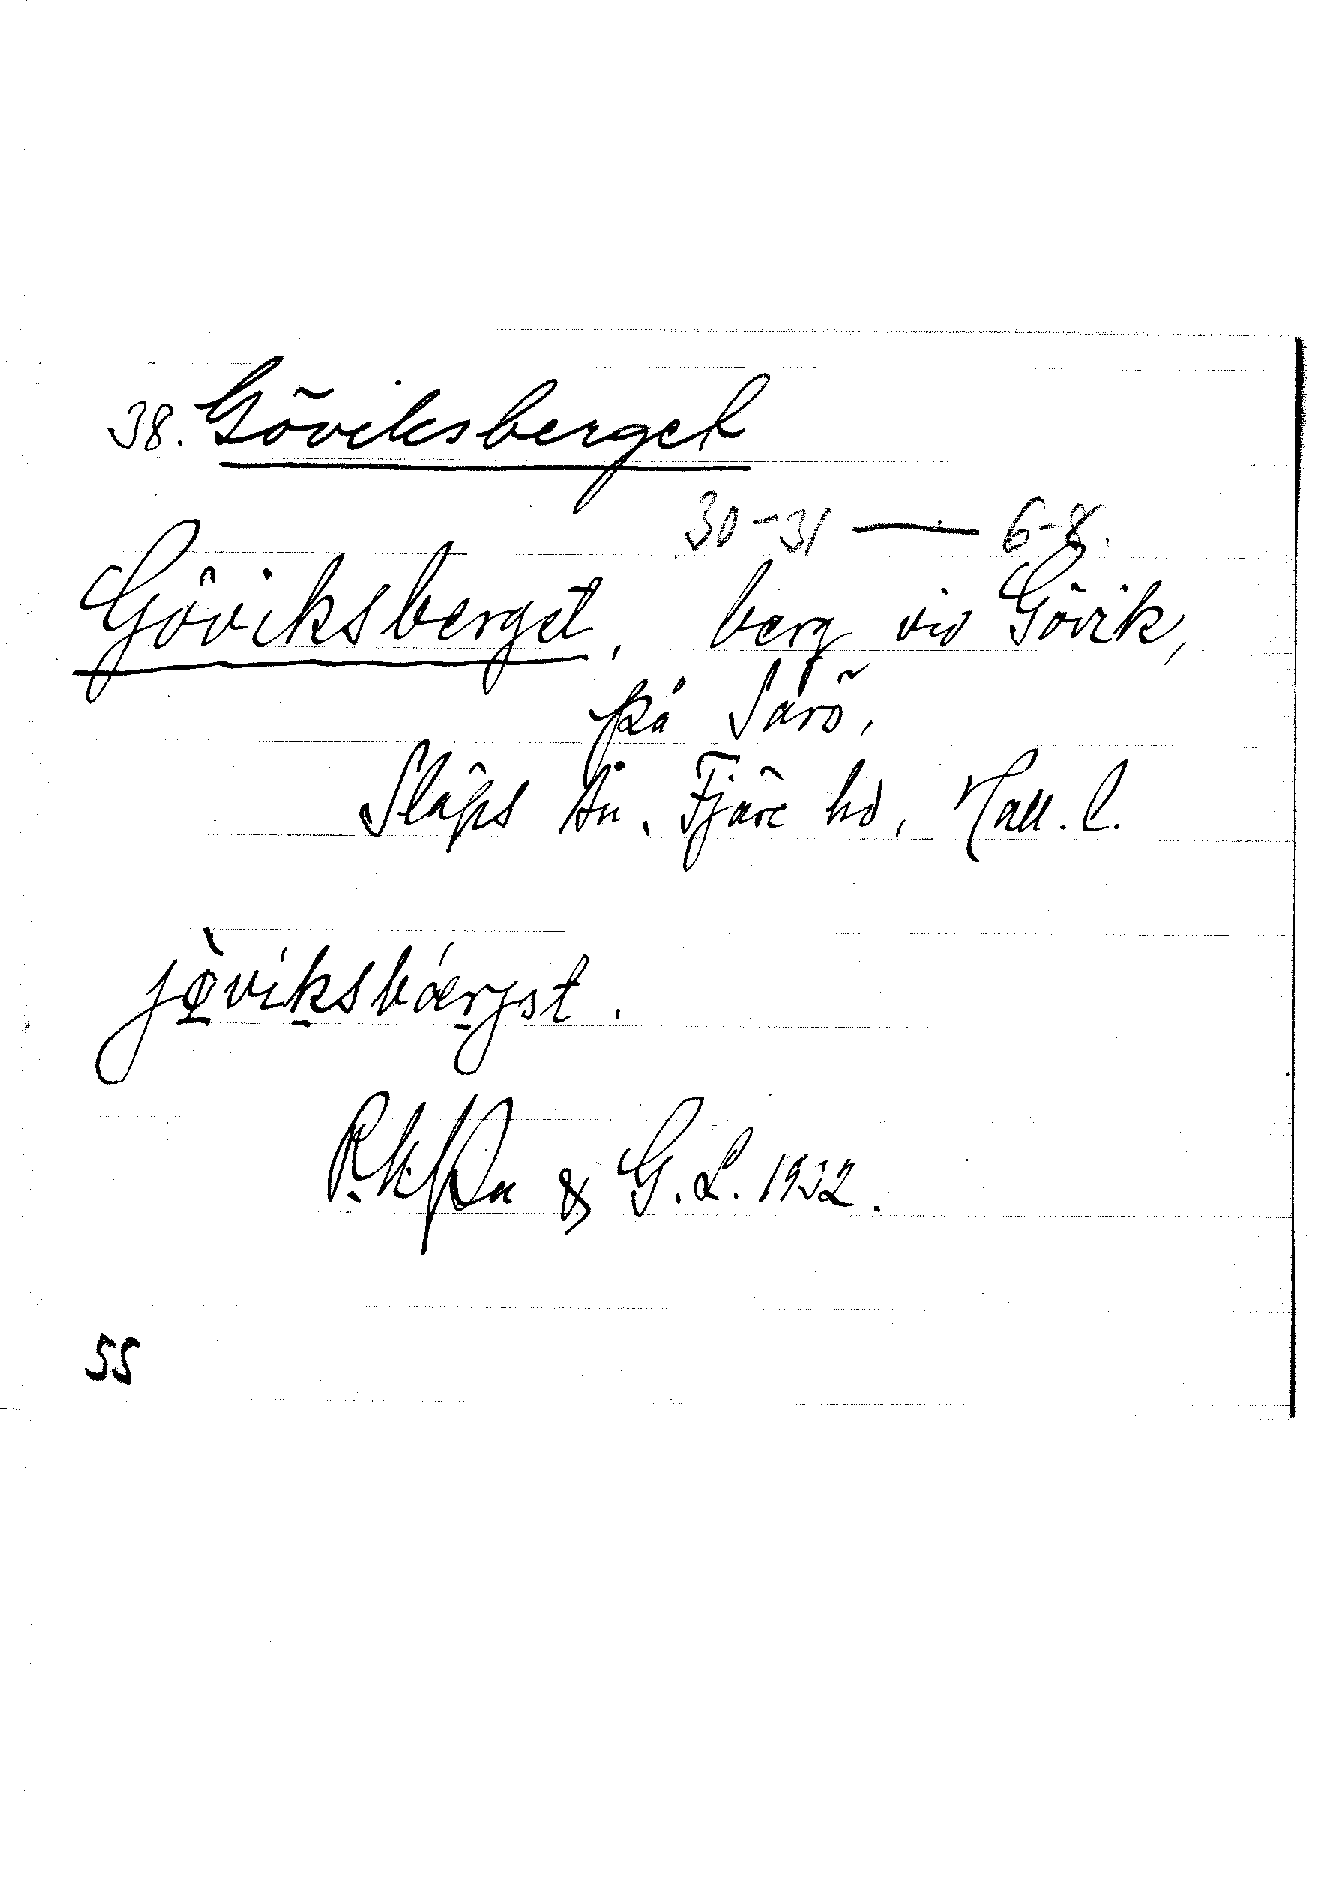 38. Göviksberget
30-31 — 6-8.
Göviksberget, berg vid Gövik,
på Särö,
Släps sn, Fjäre hd, Hall. l.
& G. L. 1932.
55